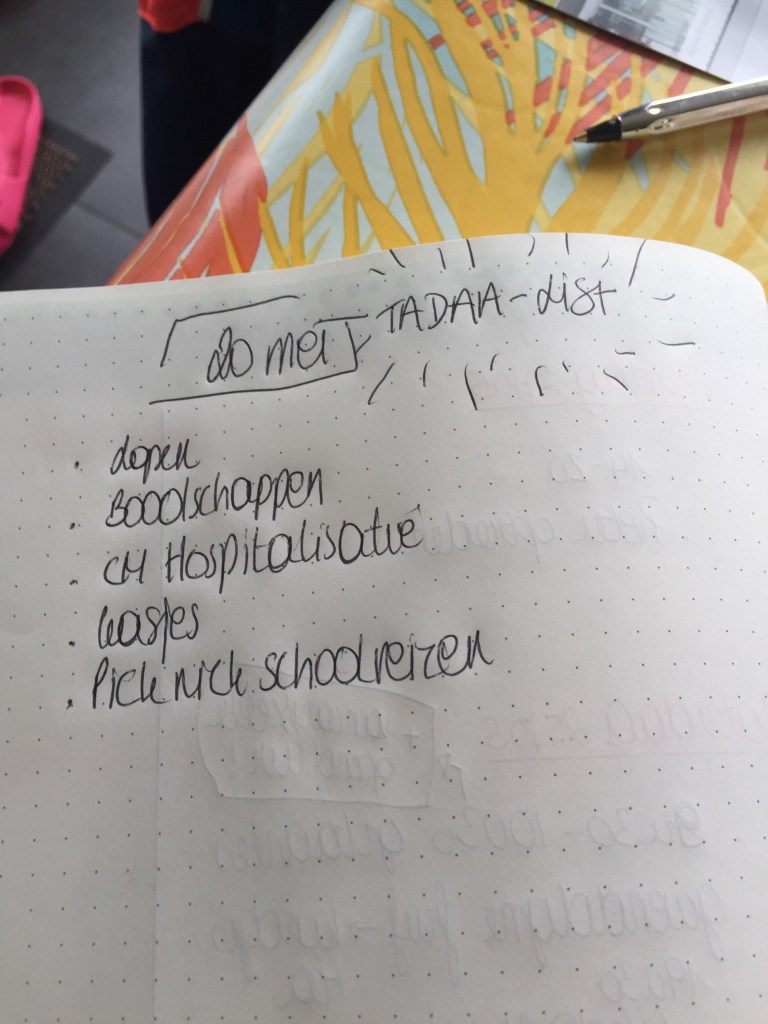 20 mei TADAA-List
. lopen
. Boodschappen
. CM Hospitalisatie
. Wasjes
. Picknick schoolreizen